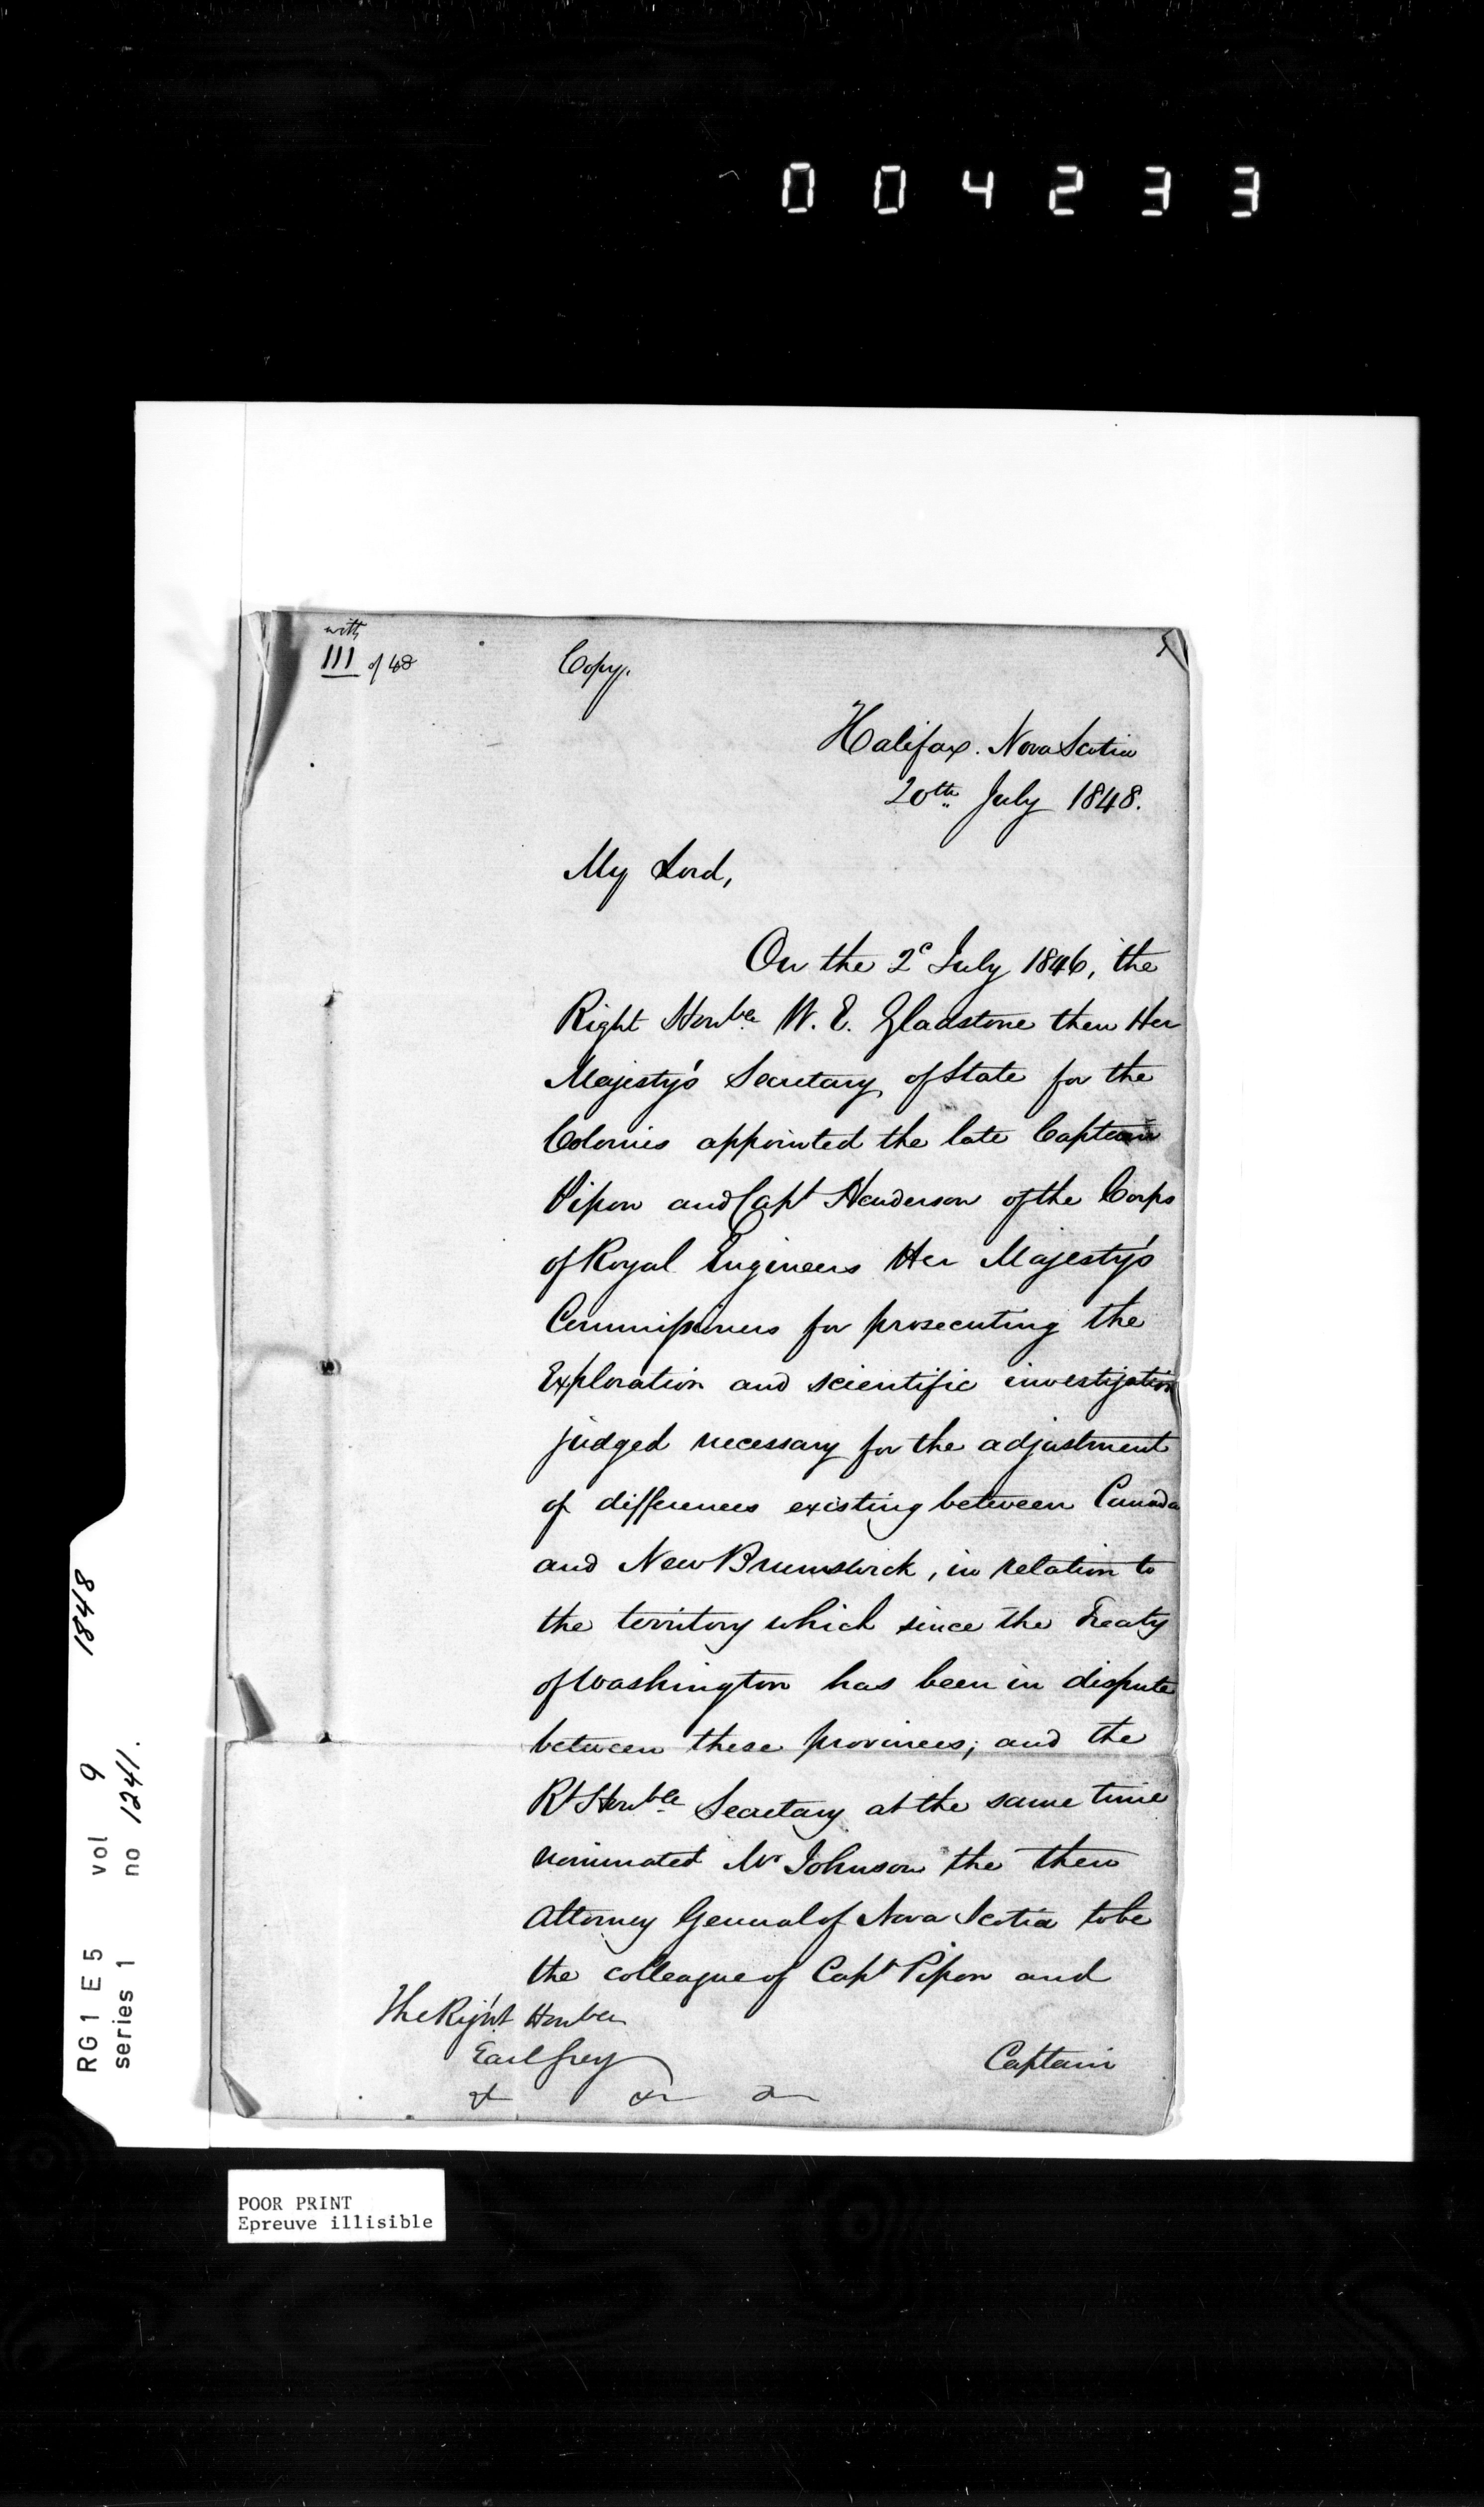 004233
with
111 of 48
Copy.
Halifax. Nova Scotia
20th July 1848.
My Lord,
On the 2d July 1846, the
Right Honble W. E. Gladstone then Her
Majesty's Secretary of State for the
Colonies appointed the late Captain
Pipon and Capt Henderson of the Corps
of Royal Engineers Her Majesty's
Commissioners for prosecuting the
Exploration and scientific investigation
judged necessary for the adjustment
of differences existing between Canada
and New Brunswick, in relation to
the territory which since the Treaty
of Washington has been in dispute
between these provinces; and the
Rt Honble Secretary at the same time
nominated Mr Johnson the then
Attorney General of Nova Scotia to be
the colleague of Capt Pipon and
The Right Honble
Earl Grey
Captain
RG1 E5 vol 9 1848
series 1 no 1241.
POOR PRINT
Epreuve illisible